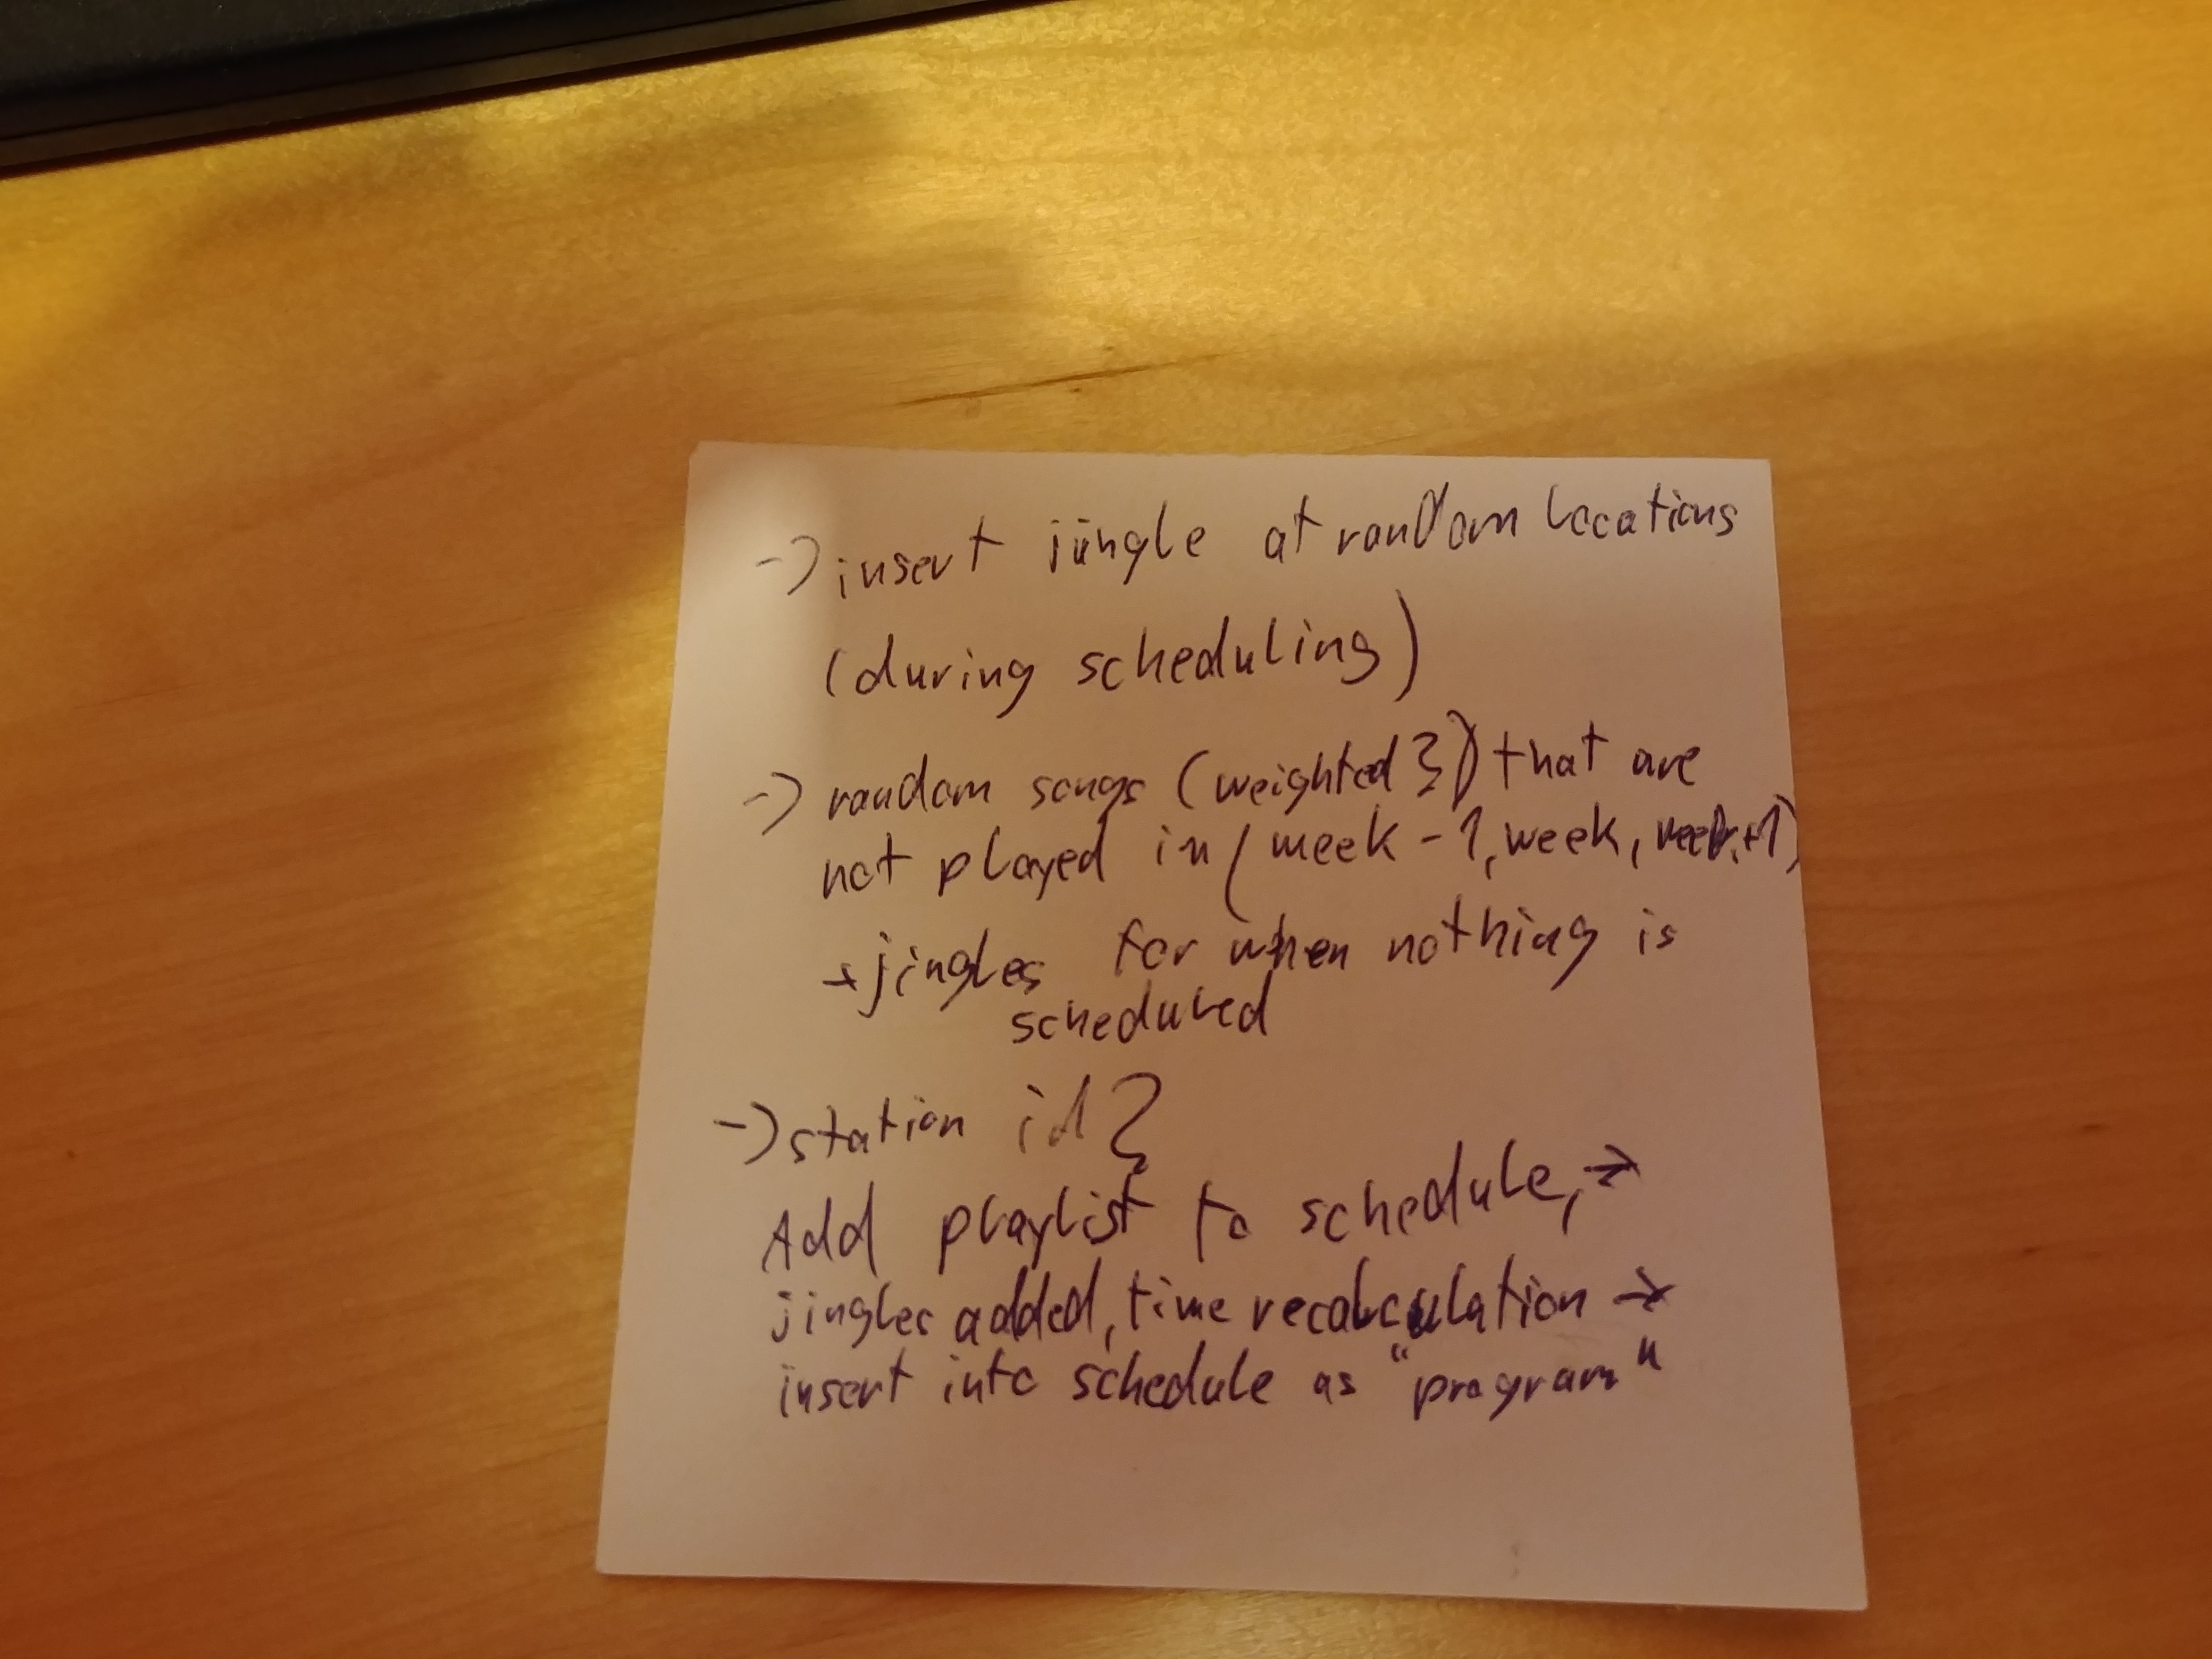 -> insert jingle at random locations
(during scheduling)
-> random songs (weighted?) that are
not played in (week -1, week, week+1)
+ jingles for when nothing is
scheduled
-> station id?
Add playlist to schedule, ->
jingles added, time recalculation ->
insert into schedule as "program"